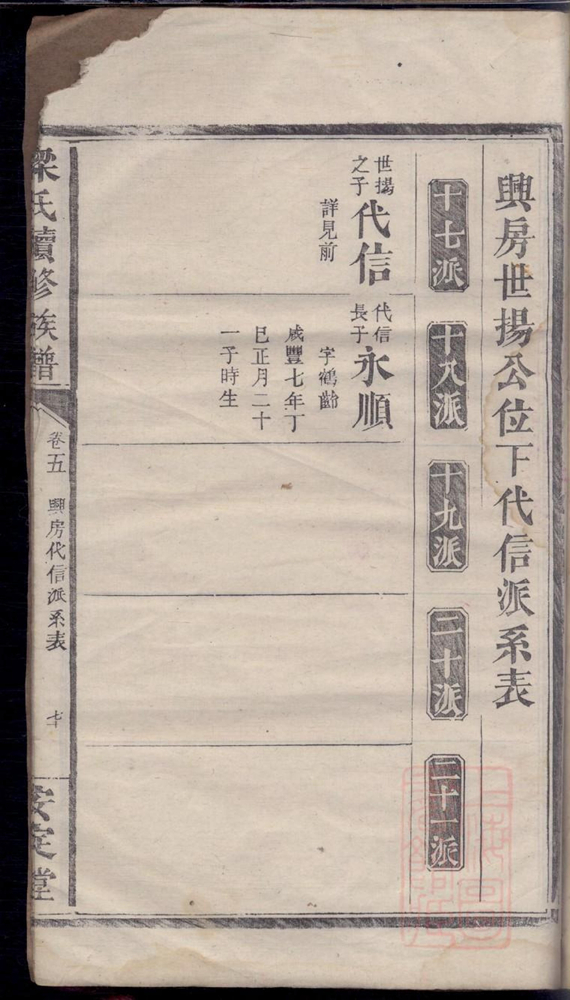 興房世揚公位下代信派系表
十七派
十八派
十九派
二十派
二十一派
世揚
之子
代信
詳見前
代信
長子
永順
字鶴齡
咸豐七年丁
巳正月二十
一子時生
梁氏續修族譜
卷五
興房代信派系表
七十
安定堂